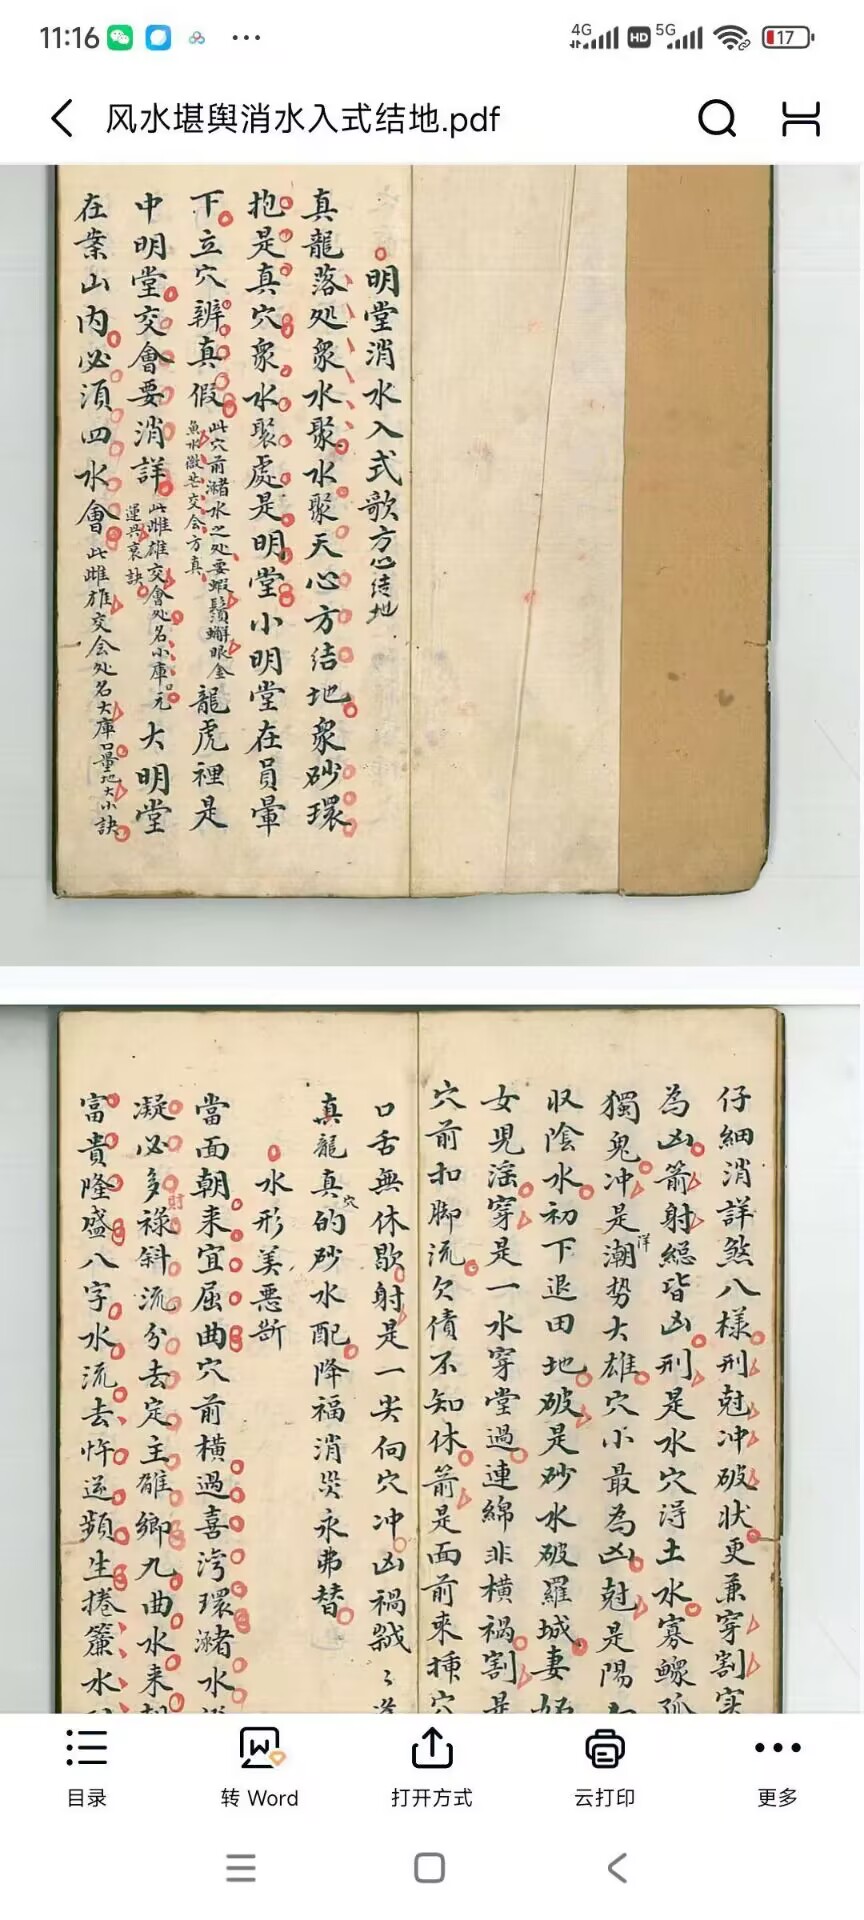 11:16 ... 4G HD 5G 17
风水堪舆消水入式结地.pdf
明堂消水入式歌方心结地
真龍落处衆水聚水聚天心方结地衆砂環
抱是真穴衆水聚處是明堂小明堂在員暈
下立穴辨真假此穴前潴水之处要蝦鬚蠏眼金魚水微茫交会方真龍虎裡是
中明堂交會要消詳此雌雄交會处名小庫元運興衰訣大明堂
在案山内必須四水會此雌雄交会处名大庫口量地大小訣
仔細消詳煞八樣刑尅冲破状更兼穿割
為凶箭射縂皆凶刑是水穴淂土水寡鰥孤
獨鬼冲是潮洋势大雄穴小最為凶尅是陽
収陰水初下退田地破是砂水破羅城妻
女児滛穿是一水穿堂過連綿非横祸割是
穴前扣脚流欠債不知休箭是面前來
口舌無休歇射是一尖向穴冲凶禍
真龍真穴的砂水配降福消災永弗替
水形美惡斷
當面朝来宜屈曲穴前横過喜湾環潴水
凝必多財禄斜流分去定主離鄉九曲水来
富貴隆盛八字水流去忤逆頻生捲簾水
目录
转 Word
打开方式
云打印
更多